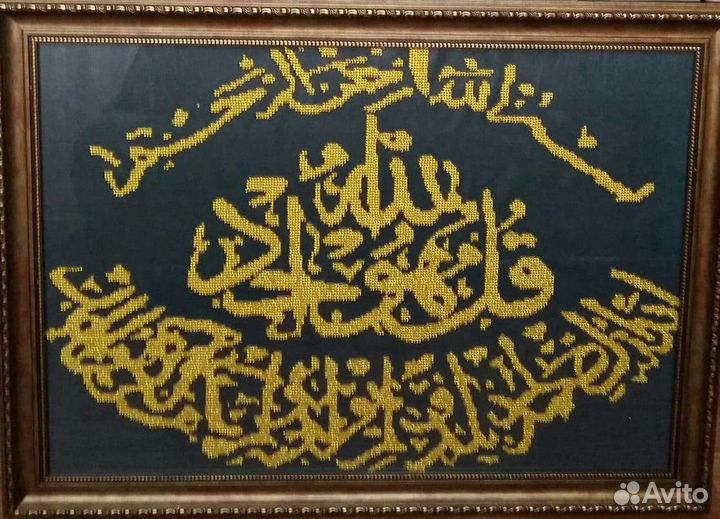 بسم الله الرحمن الرحيم
قل هو الله احد
الله الصمد لم يلد و لم يولد و لم يكن له كفوا احد
Avito